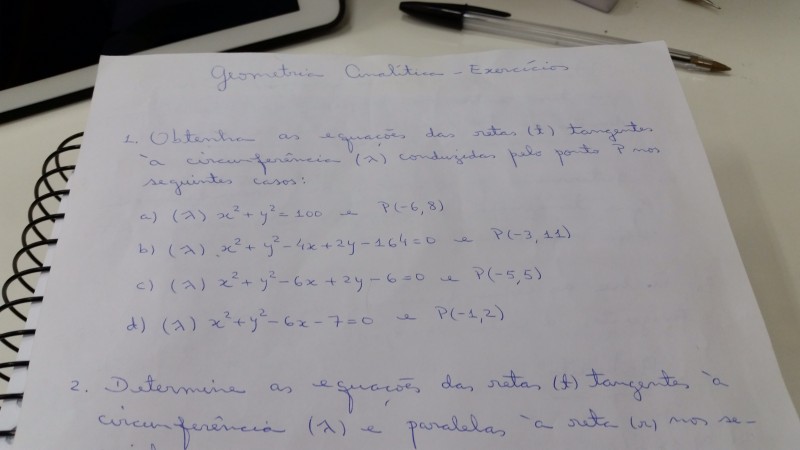 Geometria Analítica - Exercícios
1. Obtenha as equações das retas (t) tangentes
à circunferência (λ) conduzidas pelo ponto P nos
seguintes casos:
a) (λ) x²+y²=100 e P(-6,8)
b) (λ) x²+y²-4x+2y-164=0 e P(-3,11)
c) (λ) x²+y²-6x+2y-6=0 e P(-5,5)
d) (λ) x²+y²-6x-7=0 e P(-1,2)
2. Determine as equações das retas (t) tangentes à
circunferência (λ) e paralelas à reta (r) nos se-